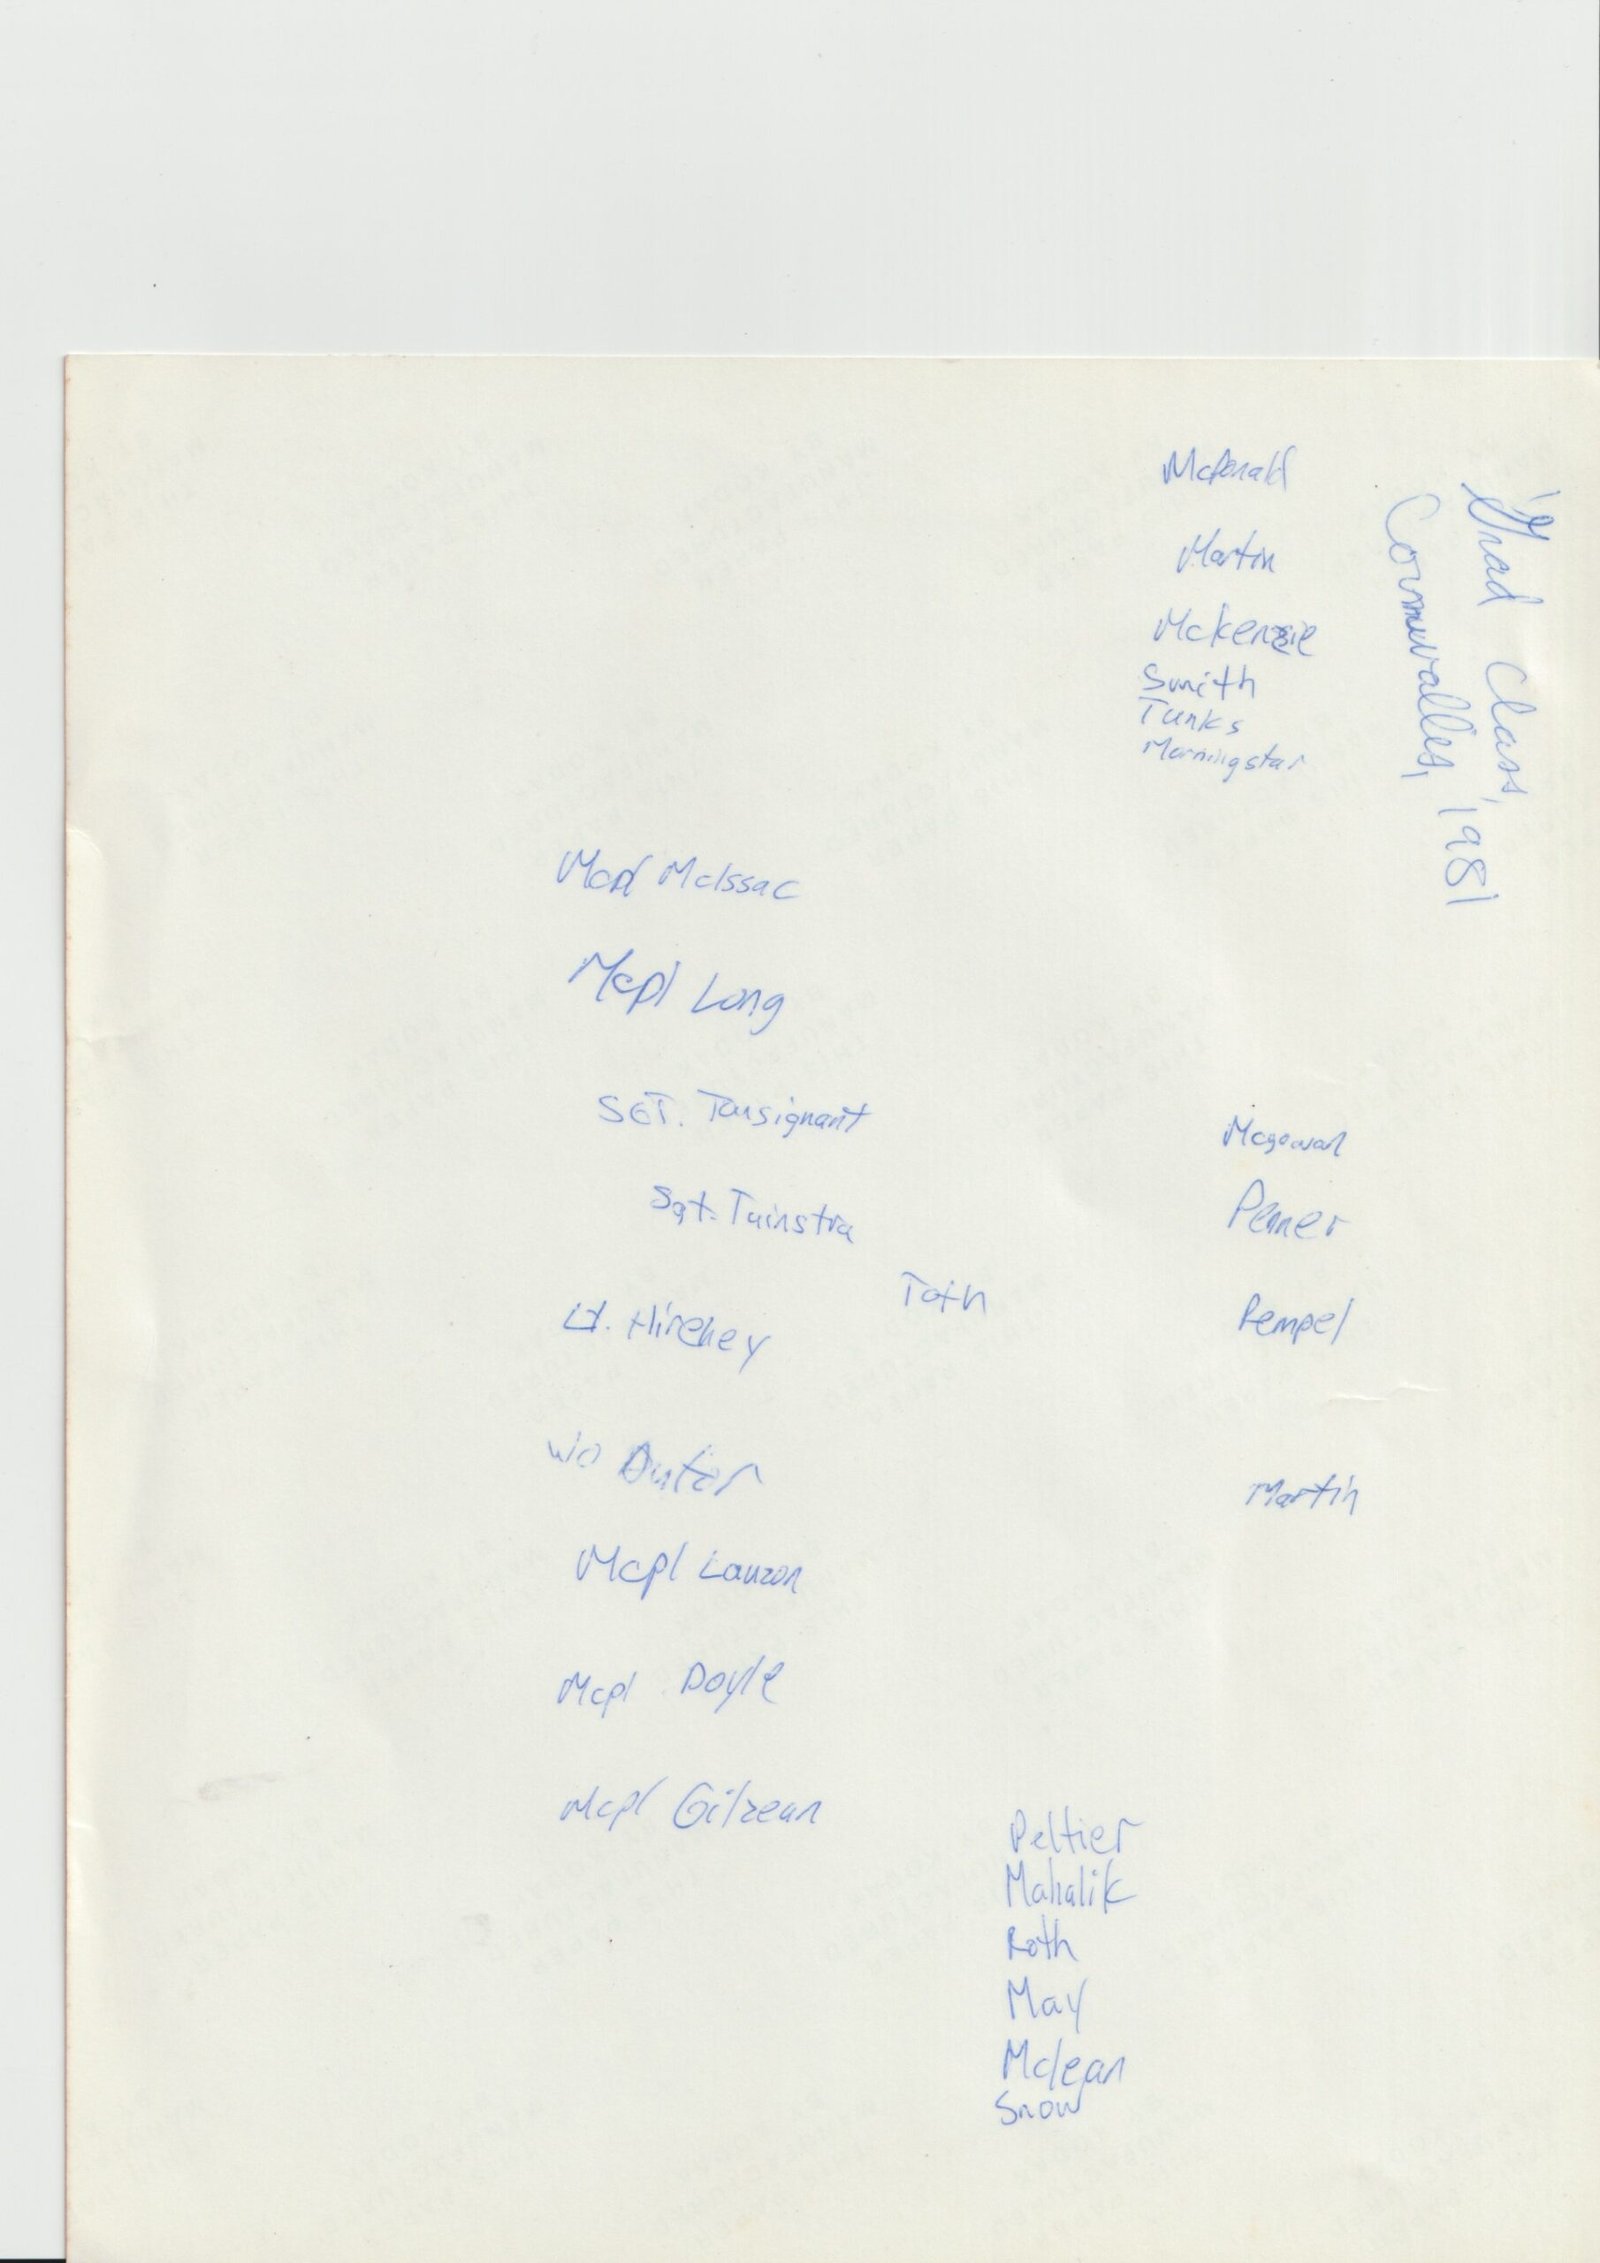 Grad Class,
Cornwallis, 1981
McDonald
Martin
Mckenzie
Smith
Tunks
Morningstar
Mcpl McIssac
Mcpl Long
SGT. Tousignant
Sgt. Tuinstra
Toth
Lt. Hirchey
WO
Mcpl Lauzon
Mcpl Doyle
Mcpl Gilzean
Mcgowan
Penner
Rempel
Martin
Peltier
Mahalik
Roth
May
Mclean
Snow